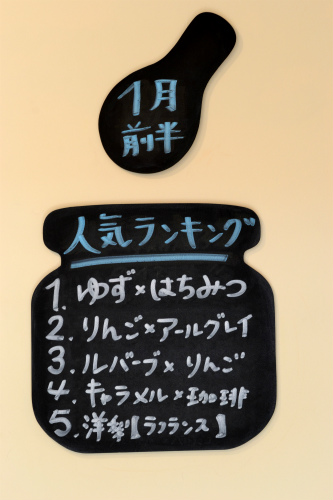 1月
前半
人気ランキング
1. ゆず×はちみつ
2. りんご×アールグレイ
3. ルバーブ×りんご
4. キャラメル×珈琲
5. 洋梨【ラフランス】